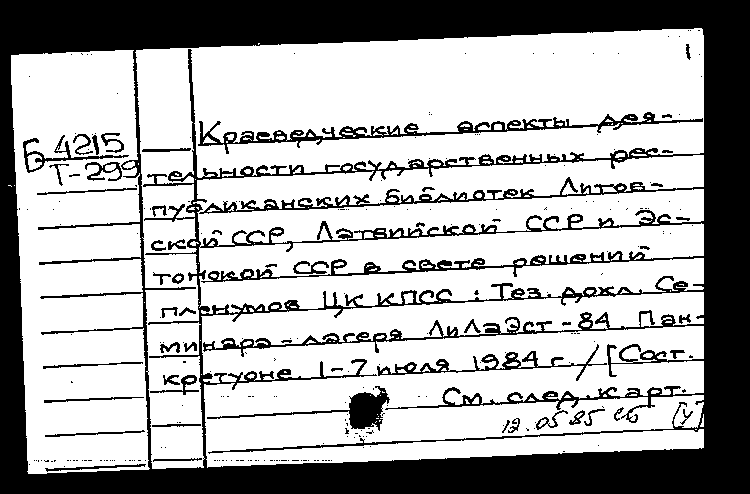 1
Краеведческие аспекты дея-
Б 4215
Т-299
тельности государственных рес-
публиканских библиотек Литов-
ской ССР, Латвийской ССР и Эс-
тонской ССР в свете решений
пленумов ЦК КПСС : Тез. докл. Се-
минара-лагеря ЛиЛаЭст-84. Пан-
кретуоне. 1-7 июля 1984 г. / [Сост.
См. след. карт.
12.05 85 [У]